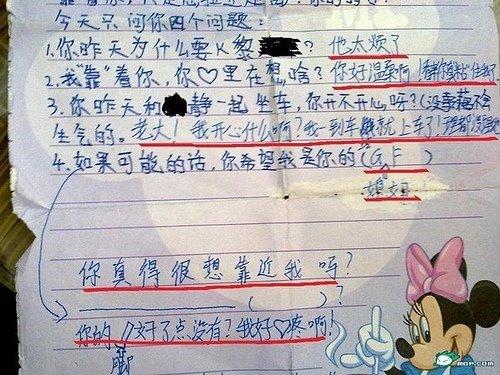 今天只问你四个问题：
1.你昨天为什么要K黎？他太烦了
2.我“靠”着你，你♡里在想啥？你好温柔啊！
3.你昨天和静一起坐车，你开不开心呀？（没事我不会
生气的。老大！我开心什么啊？我一到车就上车了！
4.如果可能的话，你希望我是你的（G.F）
媳妇
你真得很想靠近我吗？
（ ）？
你的脚好了点没有？我好♡疼啊！
MOP.COM